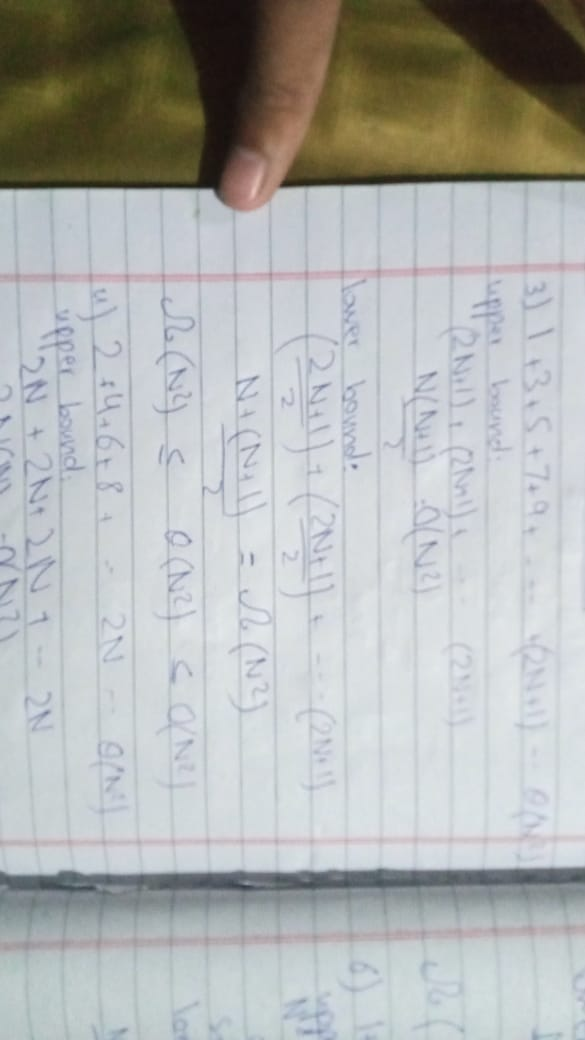 3) 1+3+5+7+9+ --- +(2N+1) -- θ(N²)
upper bound:
(2N+1) + (2N+1) + --- (2N+1)
N(N+1)/2 - O(N²)
lower bound:
(2N+1)/2 + (2N+1)/2 + --- (2N+1)
N+(N+1)/2 = Ω(N²)
Ω(N²) ≤ θ(N²) ≤ O(N²)
4) 2+4+6+8+ -- 2N -- θ(N²)
upper bound:
2N + 2N + 2N + -- 2N
O(N²)
Ω(
6) 1+